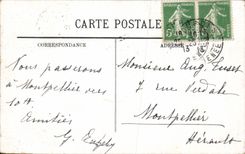 CARTE POSTALE
CORRESPONDANCE
ADRESSE
Nous passerons
à Montpellier vers
10h
Amitiés
G.
Monsieur Aug.
7 rue Verdale
Montpellier
Hérault